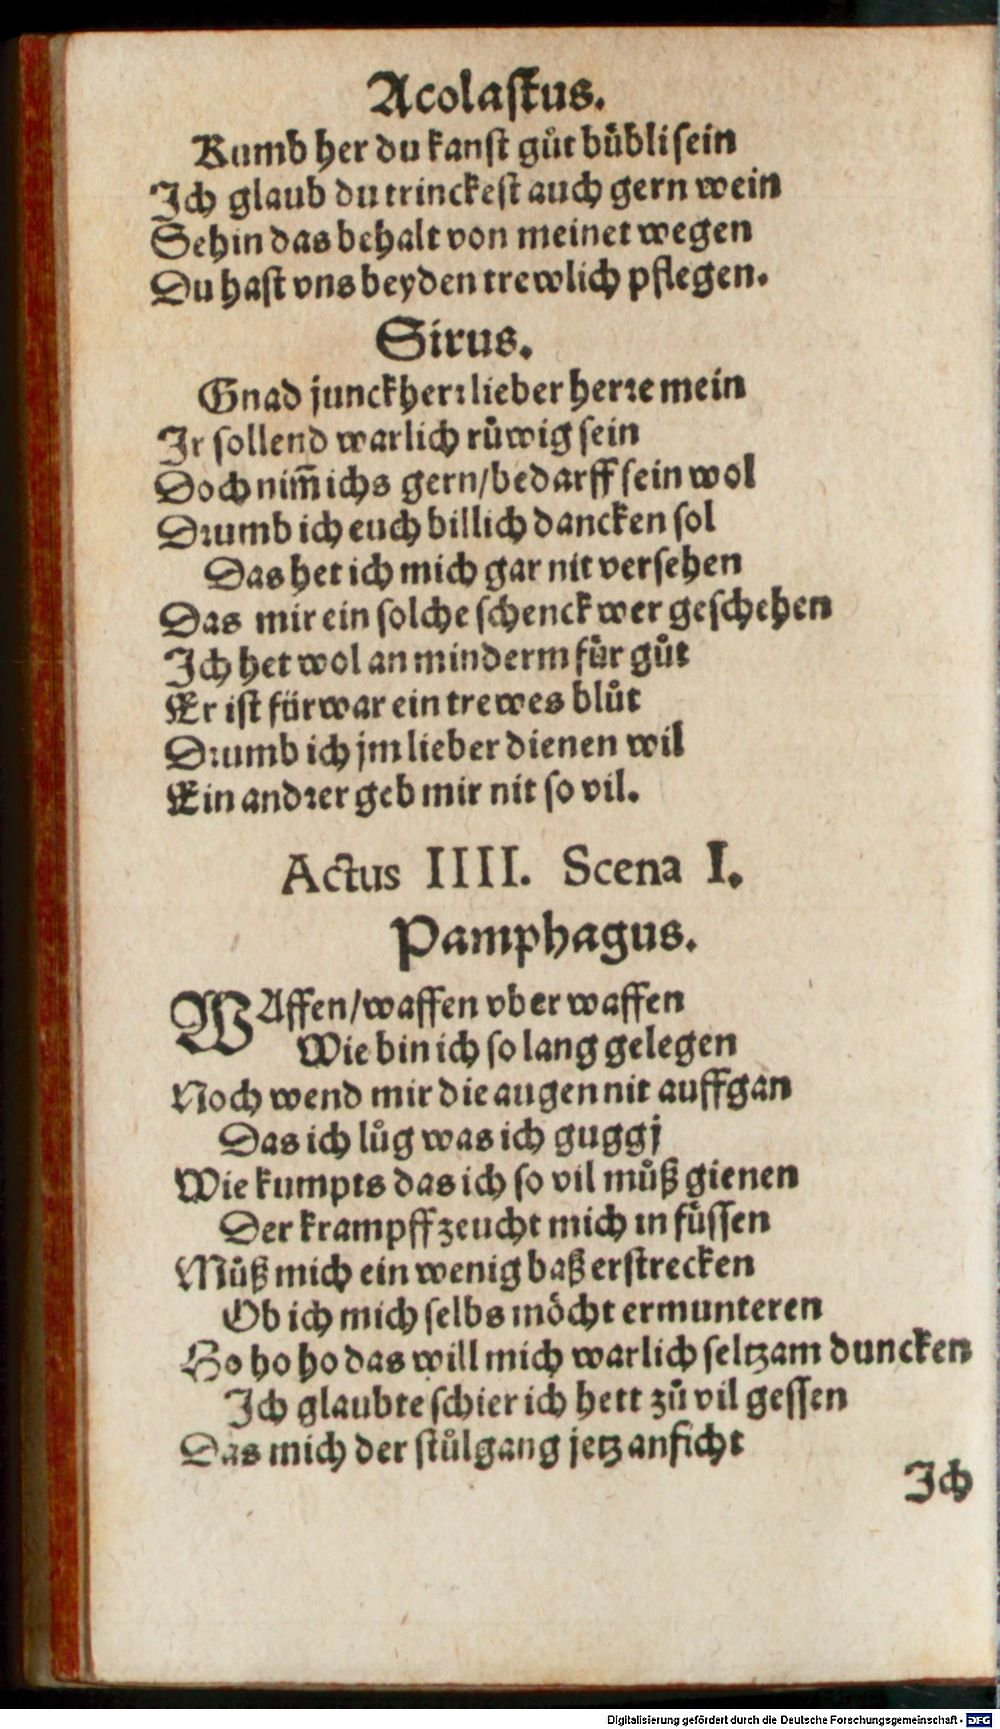 Acolastus.
Kumb her du kanst gůt bübli sein
Ich glaub du trinckest auch gern wein
Sehin das behalt von meinet wegen
Du hast vns beyden trewlich pflegen.
Sirus.
Gnad junckherr lieber herre mein
Ir sollend warlich rüwig sein
Doch nim̄ ichs gern/bedarff sein wol
Drumb ich euch billich dancken sol
Das het ich mich gar nit versehen
Das mir ein solche schenck wer geschehen
Ich het wol an minderm für gůt
Er ist fürwar ein trewes blůt
Drumb ich jm lieber dienen wil
Ein andrer geb mir nit so vil.
Actus IIII. Scena I.
Pamphagus.
WAffen/waffen vber waffen
Wie bin ich so lang gelegen
Noch wend mir die augen nit auffgan
Das ich lůg was ich guggj
Wie kumpts das ich so vil můß gienen
Der krampff zeucht mich in füssen
Můß mich ein wenig baß erstrecken
Ob ich mich selbs möcht ermunteren
Ho ho ho das will mich warlich seltzam duncken
Ich glaubte schier ich hett zů vil gessen
Das mich der stůlgang jetz anficht
Ich
Digitalisierung gefördert durch die Deutsche Forschungsgemeinschaft - DFG